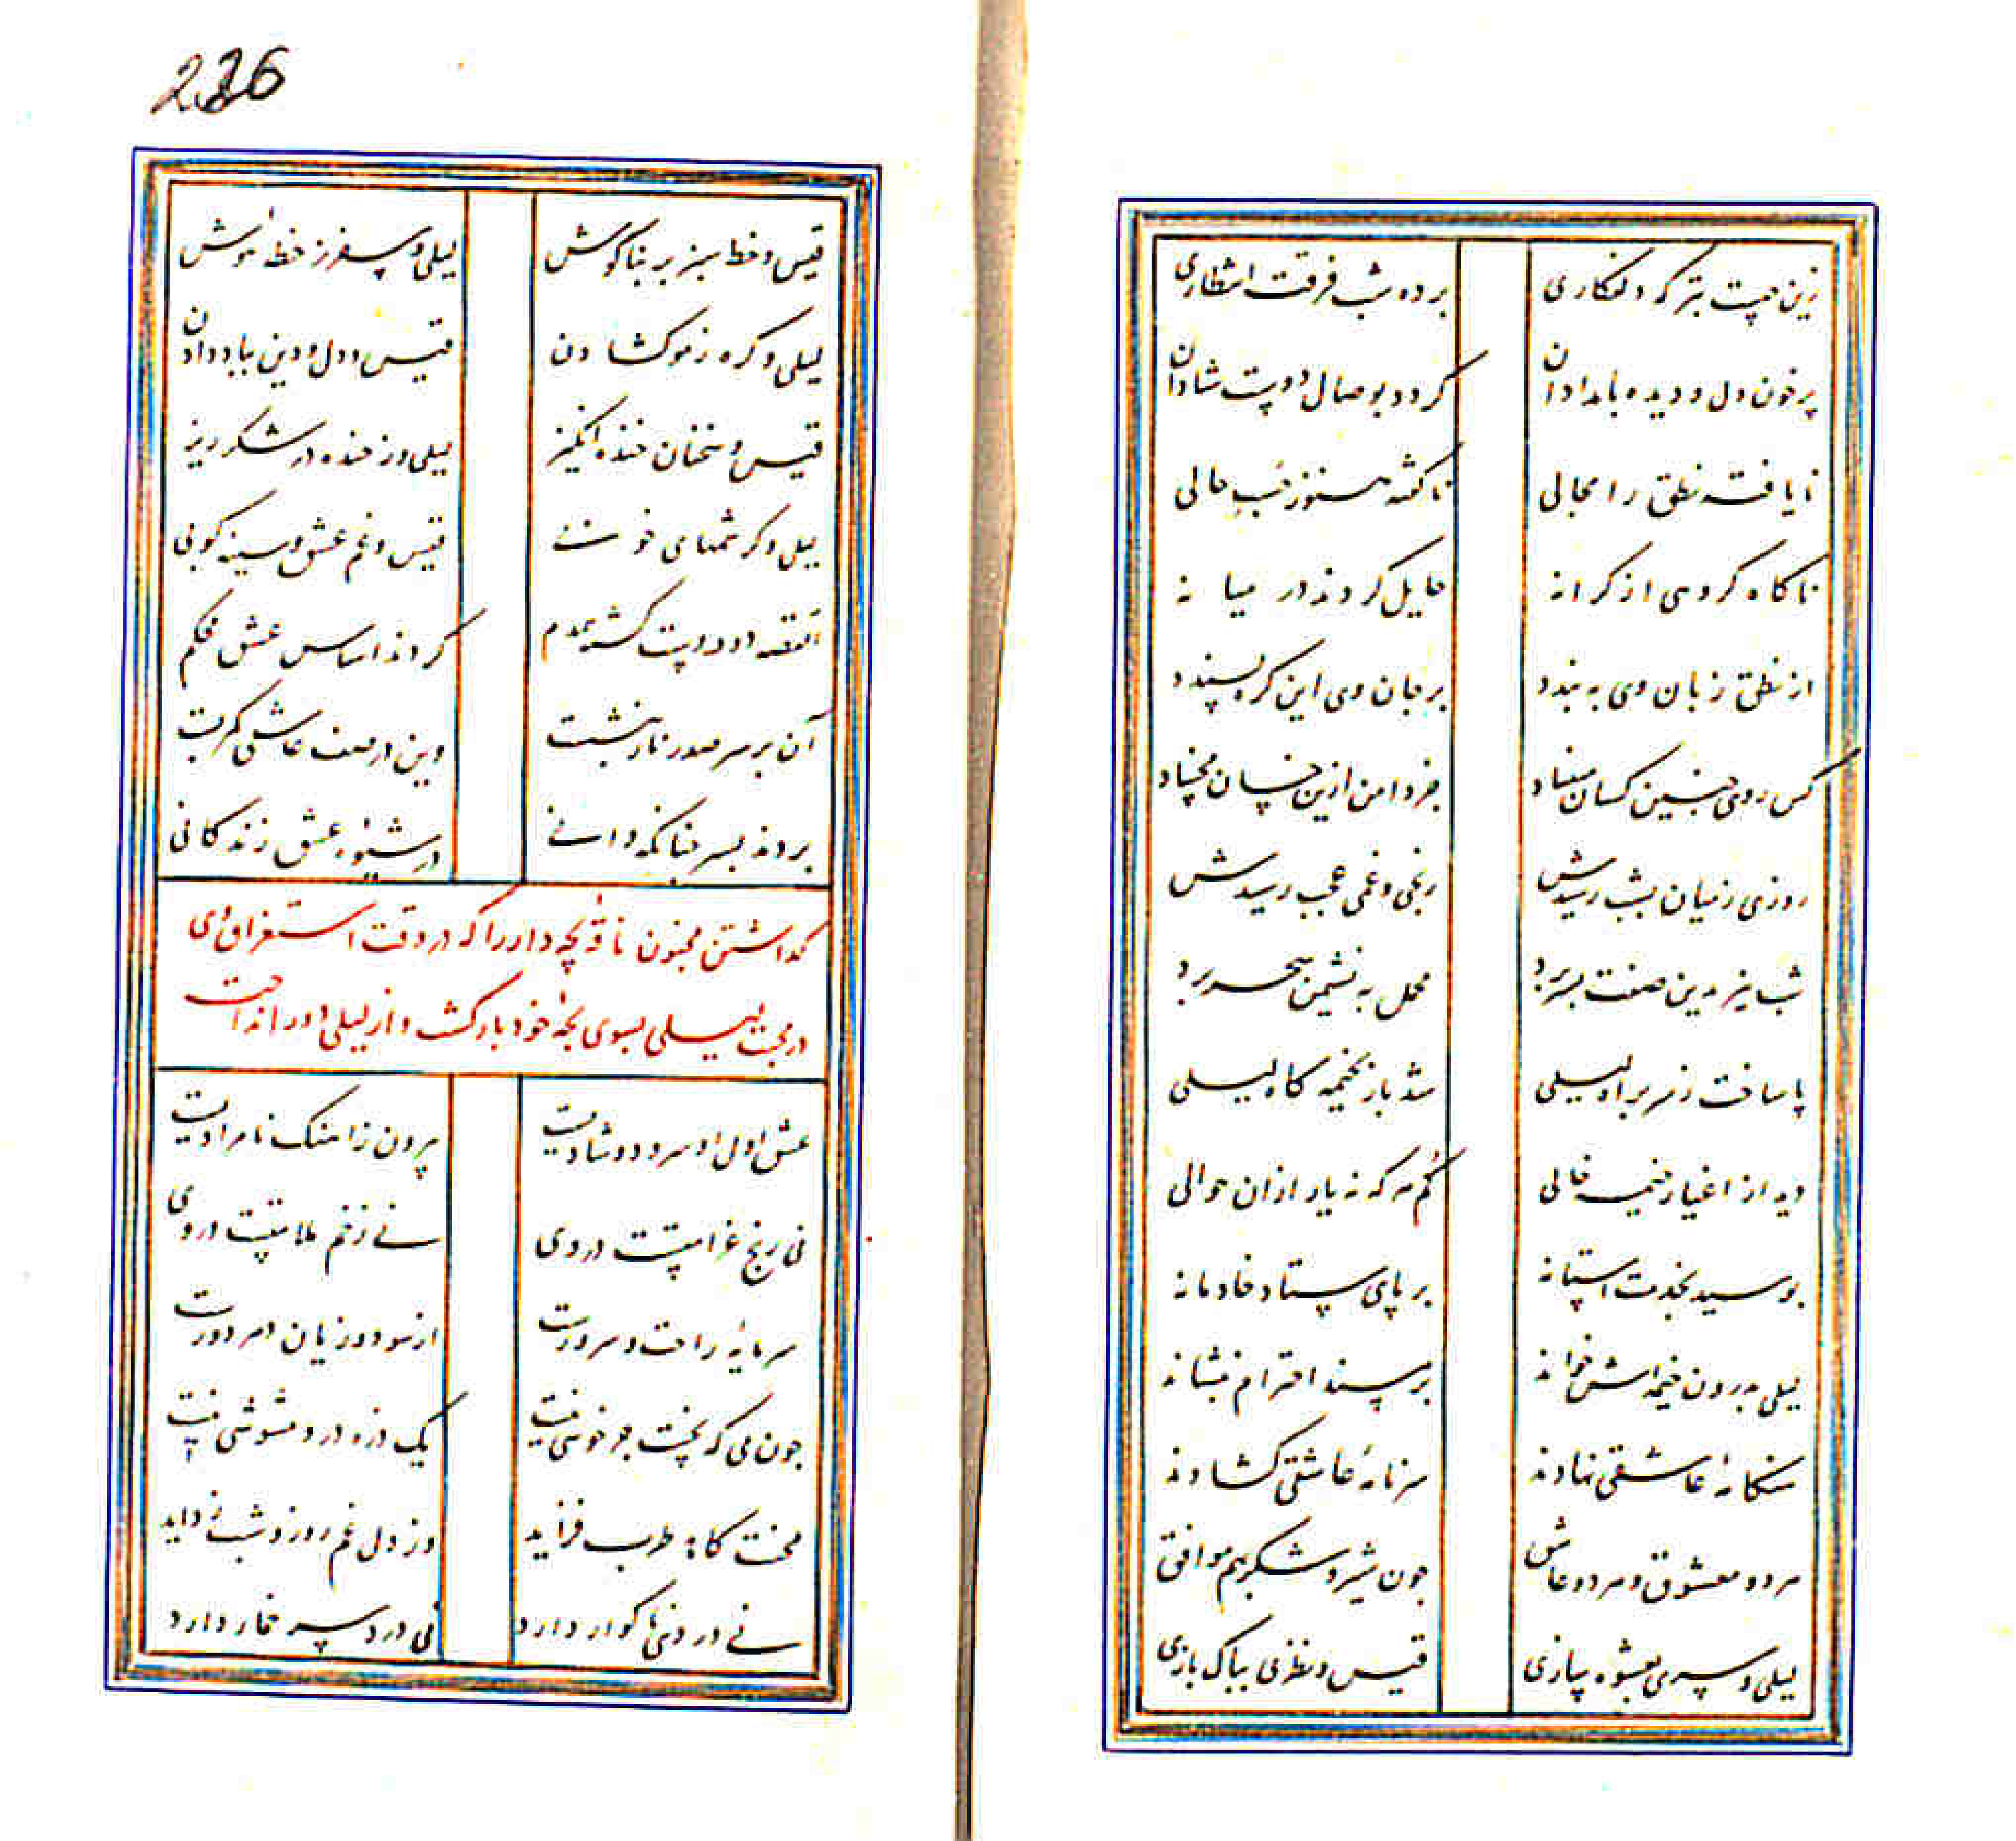 زین چیست بتر که دلفکاری برده شب فرقت انتظاری
پرخون دل و دیده بامدادان کردد بوصال دوست شادان
نایافته نطق را مجالی ناکفته هنوز حسب حالی
ناکاه کروهی از کرانه حایل کردند در میانه
از نطق زبان وی به بندد بر جان وی این کره پسندد
کس روی چنین کسان مبیناد جز دامن ازین خسان مچیناد
روزی ز میان بشب رسیدش رنجی و غمی عجب رسیدش
شب نیز بدین صفت بسر برد محمل به نشیمن سحر برد
پا ساخت ز سر براه لیلی شد باز بخیمه کاه لیلی
دید از اغیار خیمه خالی کم مه که نه یار از آن حوالی
بوسید بخدمت آستانه بر پای ستاد خادمانه
لیلی بدرون خیمه‌اش خواند بر مسند احترام بنشاند
هنکامهٔ عاشقی نهادند سرنامهٔ عاشقی کشادند
هر دو معشوق و هر دو عاشق چون شیر و شکر بهم موافق
لیلی و سری بعشوه سازی قیس و نظری بپاک بازی
226
قیس و خط سبز بر بناکوش لیلی و سفر ز خطهٔ هوش
لیلی و کره ز مو کشادن قیس و دل و دین بباد دادن
قیس و سخنان خنده انکیز لیلی وز خنده در شکر ریز
لیلی و کرشمهای خوبی قیس و غم عشق و سینه کوبی
القصه دو دوست کشته همدم کردند اساس عشق محکم
آن بر سر صدر ناز بنشست وین در صف عاشقی کمر بست
بردند بسر چنانکه دانی در شیوهٔ عشق زندکانی
کداشتن مجنون ناقهٔ بچه دار را که در وقت استغراق وی
در محبت لیلی بسوی بچهٔ خود بازکشت و از لیلی دور انداخت
عشق اول او سرود و شادیست بیرون ز آهنک نامرادیست
نی رنج غرامتیست در وی نی زخم ملامتیست در وی
سرمایهٔ راحت و سرورست از سود و ز زیان دهر دورست
چون می که نخست جز خوشی نیست یک ذره درو مشوشی نیست
محنت کاهد طرب فزاید وز دل غم روز و شب زداید
نی درد نی ناکوار دارد نی درد سر خمار دارد